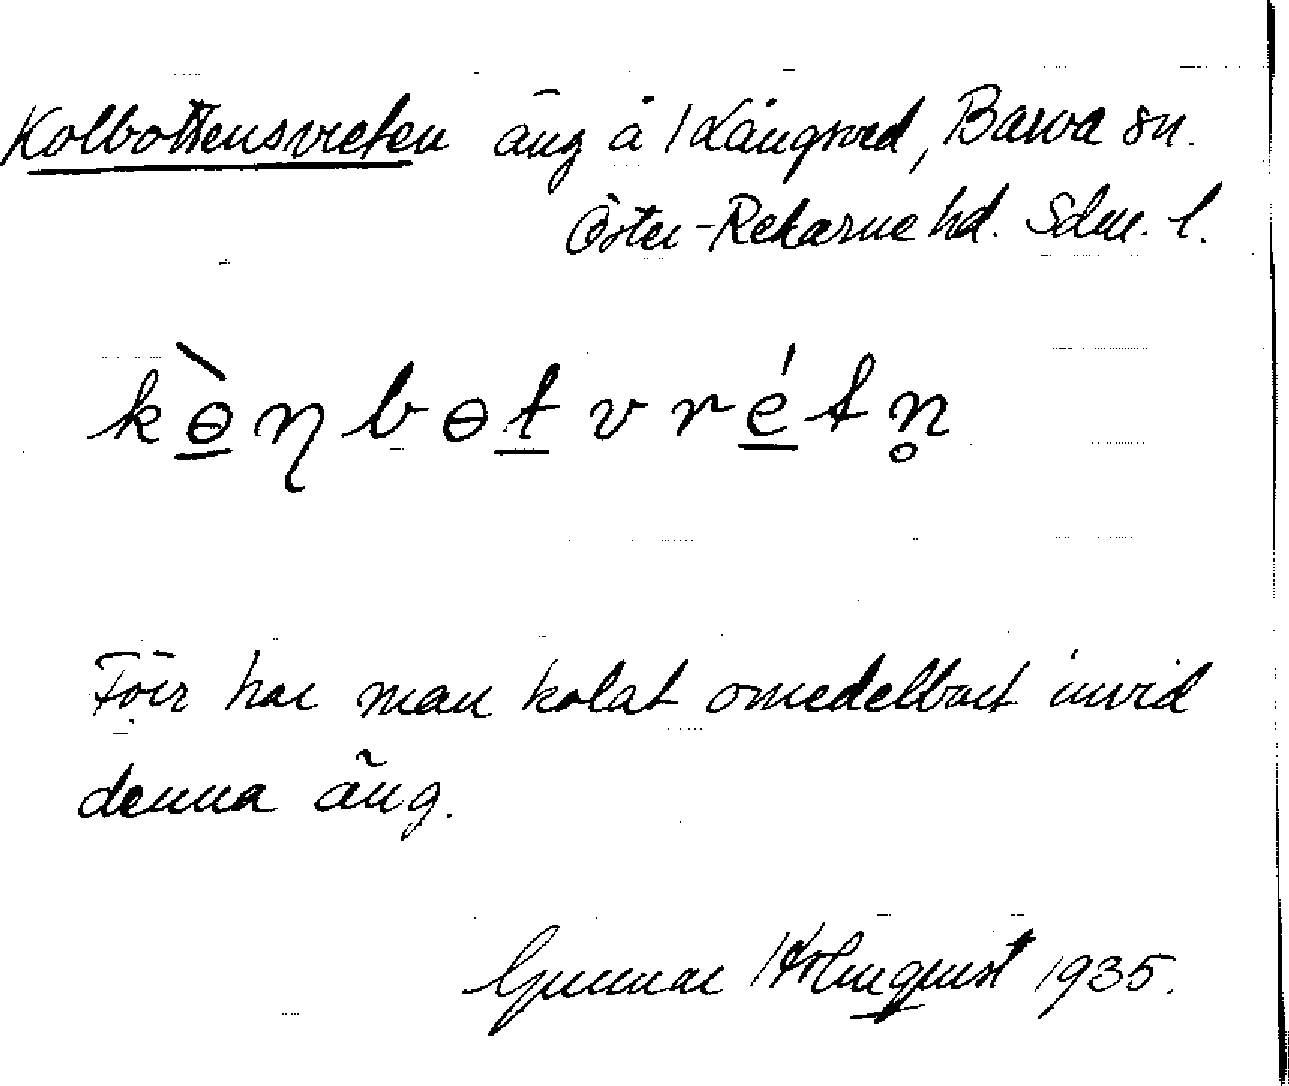 Kolbottensvreten äng å Långsved, Barva sn.
Öster-Rekarne hd. Sdm. l.
kɵ̀ŋbɵtvrétn̥
Förr har man kolat omedelbart invid
denna äng.
Gunnar Holmquist 1935.